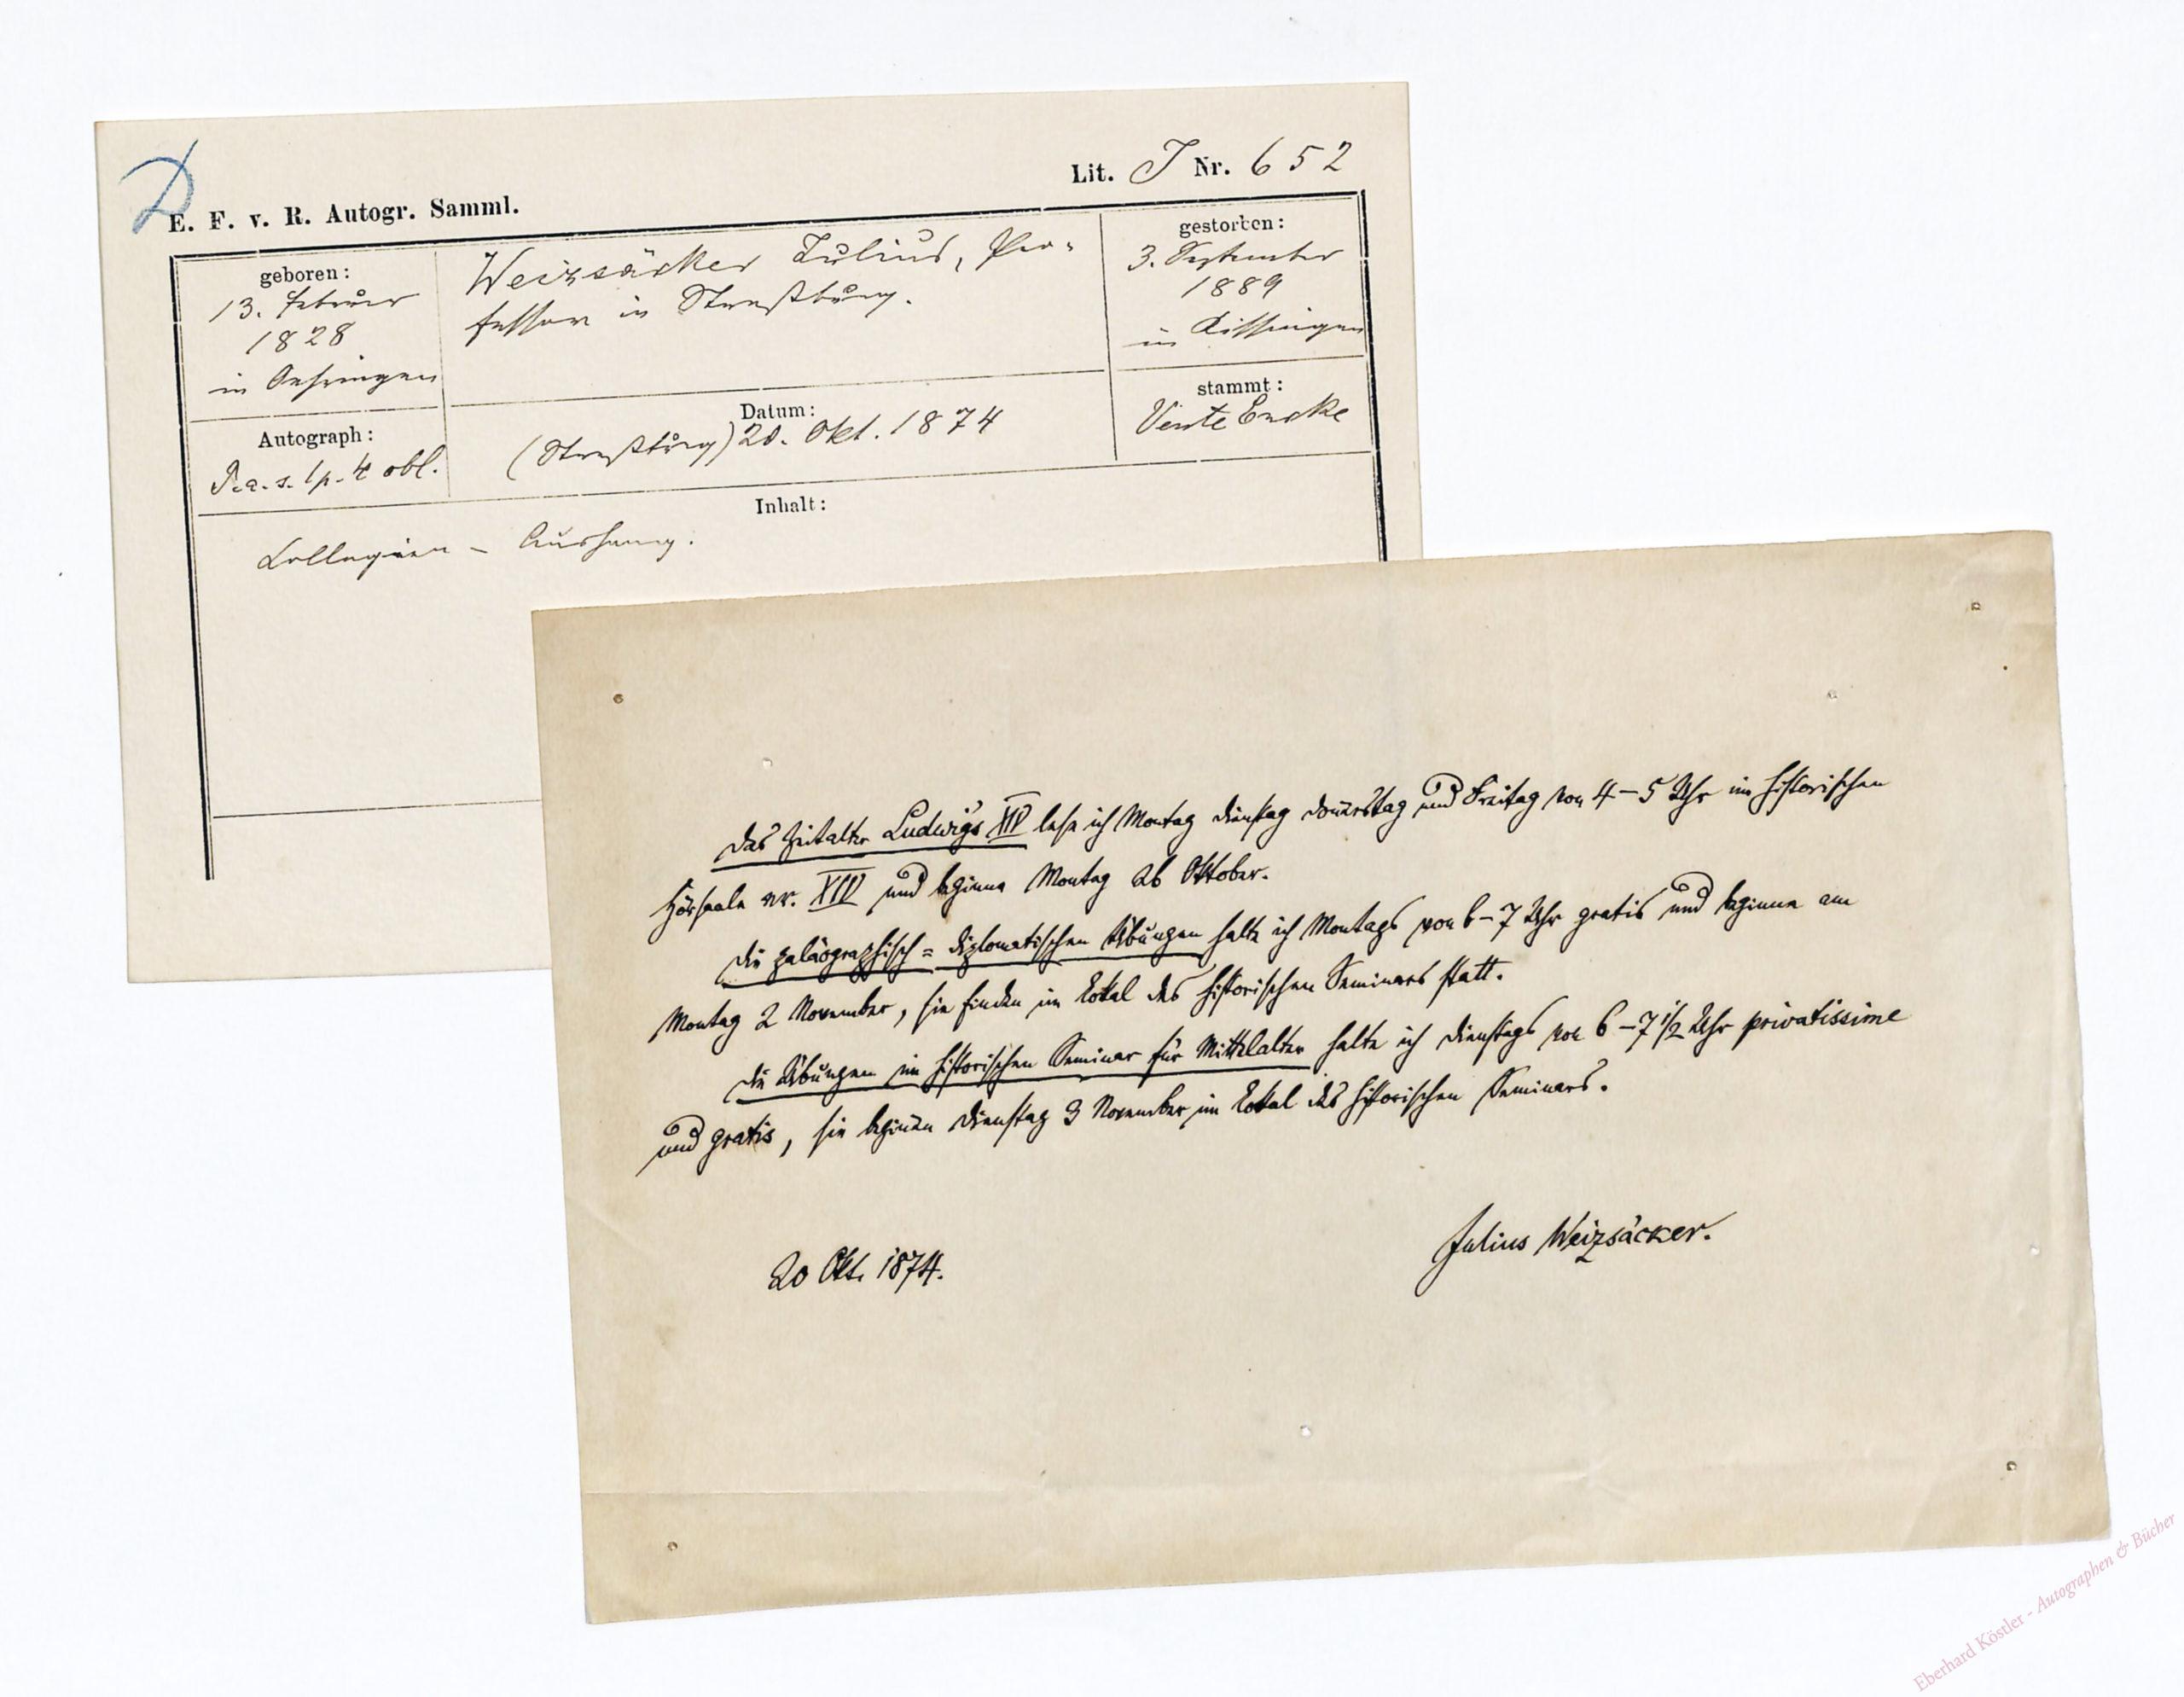 D
E. F. v. R. Autogr. Samml.
Lit. J Nr. 652
geboren:
13. Februar
1828
in Oehringen
Weizsäcker Julius, Pro-
fessor in Straßburg.
gestorben:
3. September
1889
in Kissingen
Autograph:
P. a. s. 1 p. 4° obl.
Datum:
(Straßburg) 20. Okt. 1874
stammt:
Vente Encke
Inhalt:
Collegien - Aushang.
Das Zeitalter Ludwigs XIV lese ich Montag Dienstag Donnerstag und Freitag von 4-5 Uhr im historischen
Hörsaale nr. XIV und beginne Montag 26 Oktober.
Die paläographisch=diplomatischen Übungen halte ich Montags von 6-7 Uhr gratis und beginne am
Montag 2 November, sie finden im Lokal des historischen Seminars statt.
Die Übungen im historischen Seminar für Mittelalter halte ich Dienstags von 6-7 1/2 Uhr privatissime
und gratis, sie beginnen Dienstag 3 November im Lokal des historischen Seminars.
20 Okt. 1874.
Julius Weizsäcker.
Eberhard Köstler - Autographen & Bücher